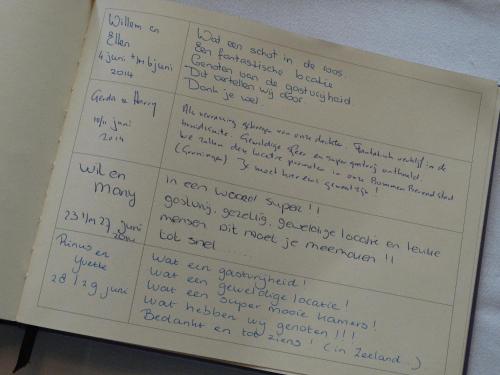 Willem en
Ellen
4 juni t/m 6 juni
2014
Wat een schot in de roos.
Een fantastische locatie
Genoten van de gastvrijheid
Dit vertellen wij door
Dank je wel
Gerda en Harry
10/11 juni
2014
Als verrassing gekregen van onze dochter. Fantastisch verblijf in de
. Geweldige sfeer en super gastvrij onthaal.
We zullen deze locatie promoten in onze
(Groningen) Je moet hier eens geweest zijn!
Wil en
Many
23 t/m 27 juni
2014
In een woord super!!
gastvrij, gezellig, geweldige locatie en leuke
mensen Dit moet je meemaken!!
tot snel .....
Rinus en
Yvette
28 / 29 juni
Wat een gastvrijheid!
Wat een geweldige locatie!
Wat een super mooie kamers!
Wat hebben wij genoten!!!
Bedankt en tot ziens! (in Zeeland...)